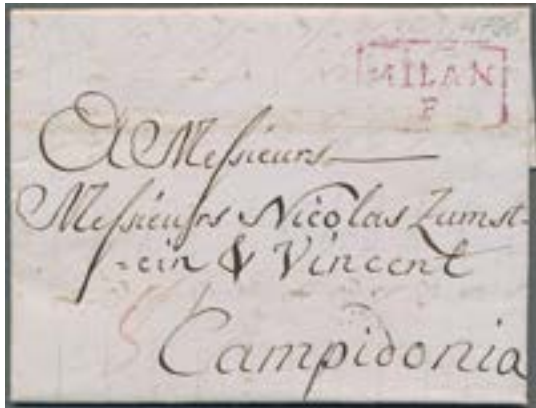 MILAN
F
A Messieurs
Messieurs Nicolas Zumst-
-ein & Vincent
Campidonia